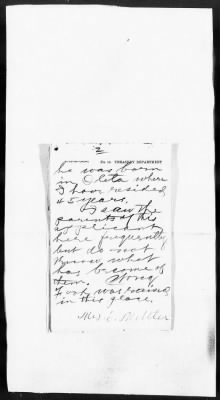 2
TREASURY DEPARTMENT
he was born
in Oleta where
I have resided
45 years.
I saw the
parents of this
applicant
here frequently
but do not
know what
has become of
them. Wong
Fook was raised
in this place.
Mrs. E.